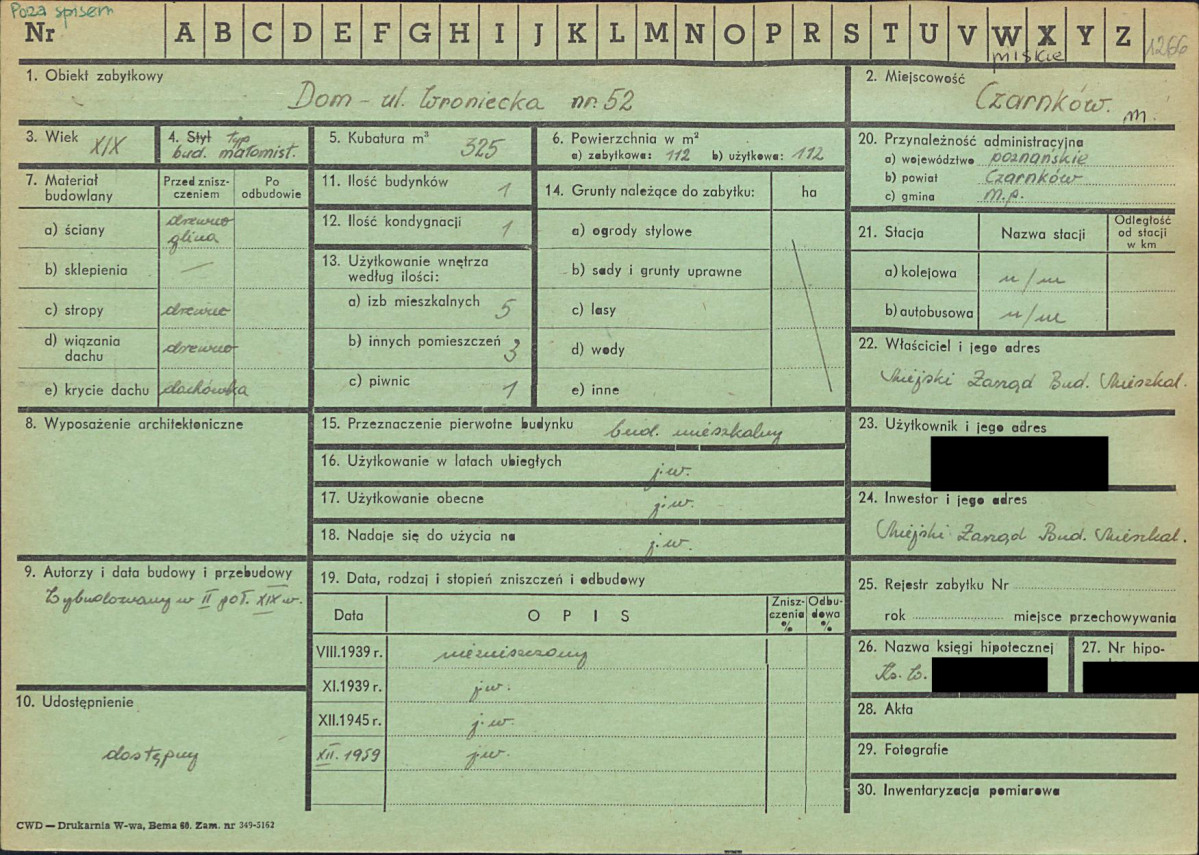 Poza spisem
Nr A B C D E F G H I J K L M N O P R S T U V W X Y Z 1266
miskie
1. Obiekt zabytkowy
Dom - ul. Wroniecka nr. 52
2. Miejscowość
Czarnków. m.
3. Wiek XIX
4. Styl typ
bud. małomist.
5. Kubatura m³ 325
6. Powierzchnia w m²
a) zabytkowa: 112 b) użytkowa: 112
7. Materiał budowlany
Przed zniszczeniem
Po odbudowie
a) ściany drewno
glina
b) sklepienia —
c) stropy drewno
d) wiązania dachu drewno
e) krycie dachu dachówka
8. Wyposażenie architektoniczne
9. Autorzy i data budowy i przebudowy
Wybudowany w II poł. XIX w.
10. Udostępnienie
dostępny
11. Ilość budynków 1
12. Ilość kondygnacji 1
13. Użytkowanie wnętrza
według ilości:
a) izb mieszkalnych 5
b) innych pomieszczeń 3
c) piwnic 1
14. Grunty należące do zabytku: ha
a) ogrody stylowe
b) sady i grunty uprawne
c) lasy
d) wody
e) inne
15. Przeznaczenie pierwotne budynku bud. mieszkalny
16. Użytkowanie w latach ubiegłych j.w.
17. Użytkowanie obecne j.w.
18. Nadaje się do użycia na j.w.
19. Data, rodzaj i stopień zniszczeń i odbudowy
Data OPIS Zniszczenia % Odbudowa %
VIII.1939 r. niezniszczony
XI.1939 r. j.w.
XII.1945 r. j.w.
XII. 1959 j.w.
20. Przynależność administracyjna
a) województwo poznańskie
b) powiat Czarnków
c) gmina M.p.
21. Stacja Nazwa stacji Odległość od stacji w km
a) kolejowa n/m
b) autobusowa n/m
22. Właściciel i jego adres
Miejski Zarząd Bud. Mieszkal.
23. Użytkownik i jego adres
24. Inwestor i jego adres
Miejski Zarząd Bud. Mieszkal.
25. Rejestr zabytku Nr
rok miejsce przechowywania
26. Nazwa księgi hipotecznej
Ks. W.
27. Nr hipo-
28. Akta
29. Fotografie
30. Inwentaryzacja pomiarowa
CWD — Drukarnia W-wa, Bema 60. Zam. nr 349-5162